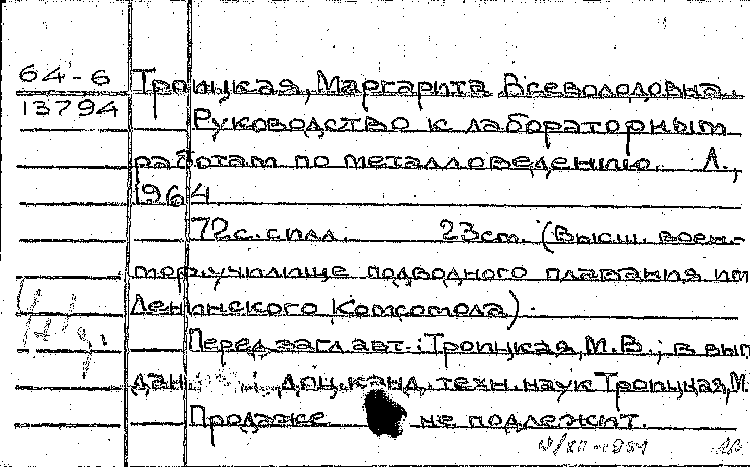 64-6
13794
Троицкая, Маргарита Всеволодовна.
Руководство к лабораторным
работам по металловедению. Л.,
1964
72с. силл. 23cm. (Высш. воен.-
мор. училище подводного плавания им
Ленинского Комсомола).
Перед загл. авт.: Троицкая, М.В.; в вып
дан. доц. канд. техн. наук Троицкая, М.
Продаже не подлежит.